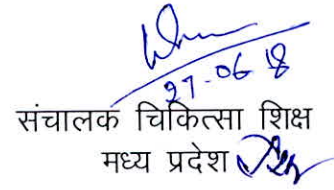 27-06 18
संचालक चिकित्सा शिक्ष
मध्य प्रदेश